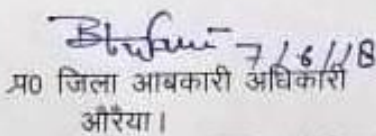 7/6/18
प्र0 जिला आबकारी अधिकारी
औरैया।